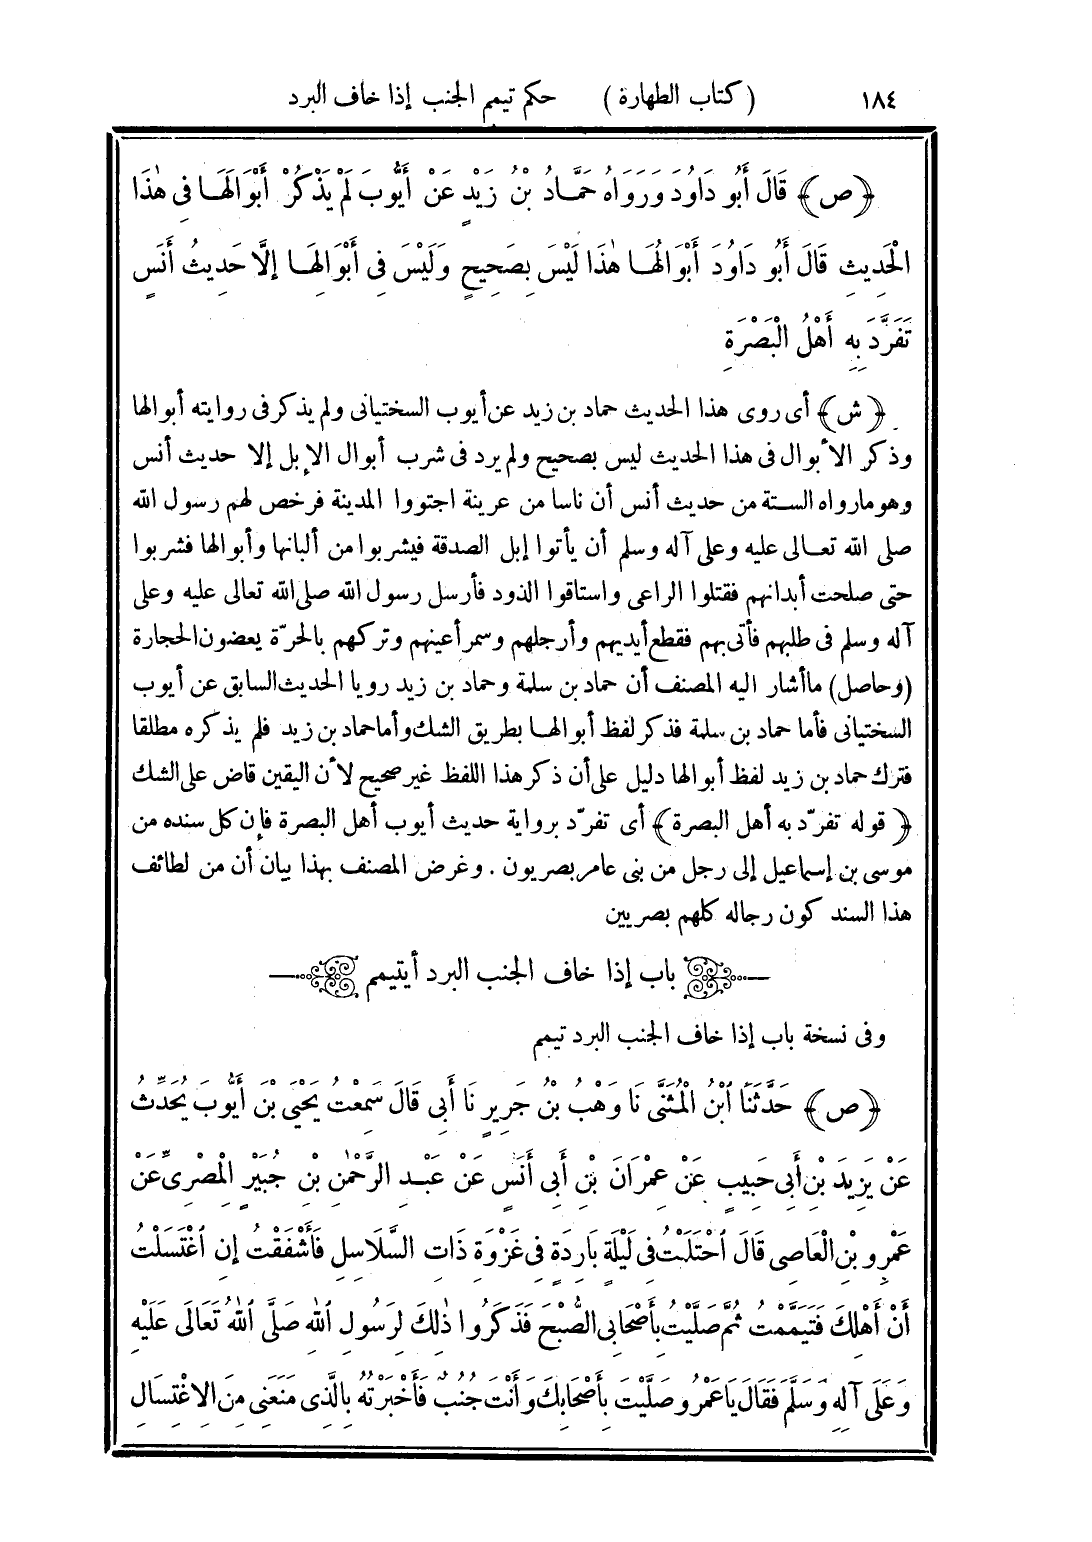 ١٨٤ (كتاب الطهارة) حكم تيمم الجنب إذا خاف البرد
﴿ص﴾ قَالَ أَبُو دَاوُدَ وَرَوَاهُ حَمَّادُ بْنُ زَيْدٍ عَنْ أَيُّوبَ لَمْ يَذْكُرْ أَبْوَالَهَا فِى هٰذَا
الْحَدِيثِ قَالَ أَبُو دَاوُدَ أَبْوَالُهَا هٰذَا لَيْسَ بِصَحِيحٍ وَلَيْسَ فِى أَبْوَالِهَا إِلَّا حَدِيثُ أَنَسٍ
تَفَرَّدَ بِهِ أَهْلُ الْبَصْرَةِ
﴿ش﴾ أى روى هذا الحديث حماد بن زيد عن أيوب السختيانى ولم يذكر فى روايته أبوالها
وذكر الأبوال فى هذا الحديث ليس بصحيح ولم يرد فى شرب أبوال الإبل إلا حديث أنس
وهو مارواه الستة من حديث أنس أن ناسا من عرينة اجتووا المدينة فرخص لهم رسول الله
صلى الله تعالى عليه وعلى آله وسلم أن يأتوا إبل الصدقة فيشربوا من ألبانها وأبوالها فشربوا
حتى صلحت أبدانهم فقتلوا الراعى واستاقوا الذود فأرسل رسول الله صلى الله تعالى عليه وعلى
آله وسلم فى طلبهم فأتى بهم فقطع أيديهم وأرجلهم وسمر أعينهم وتركهم بالحرّة يعضون الحجارة
(وحاصل) ماأشار اليه المصنف أن حماد بن سلمة وحماد بن زيد رويا الحديث السابق عن أيوب
السختيانى فأما حماد بن سلمة فذكر لفظ أبوالها بطريق الشك وأما حماد بن زيد فلم يذكره مطلقا
فترك حماد بن زيد لفظ أبوالها دليل على أن ذكر هذا اللفظ غير صحيح لأن اليقين قاض على الشك
﴿قوله تفرّد به أهل البصرة﴾ أى تفرّد برواية حديث أيوب أهل البصرة فإن كل سنده من
موسى بن إسماعيل إلى رجل من بنى عامر بصريون . وغرض المصنف بهذا بيان أن من لطائف
هذا السند كون رجاله كلهم بصريين
باب إذا خاف الجنب البرد أيتيمم
وفى نسخة باب إذا خاف الجنب البرد تيمم
﴿ص﴾ حَدَّثَنَا ابْنُ الْمُثَنَّى نَا وَهْبُ بْنُ جَرِيرٍ نَا أَبِى قَالَ سَمِعْتُ يَحْيَى بْنَ أَيُّوبَ يُحَدِّثُ
عَنْ يَزِيدَ بْنِ أَبِى حَبِيبٍ عَنْ عِمْرَانَ بْنِ أَبِى أَنَسٍ عَنْ عَبْدِ الرَّحْمٰنِ بْنِ جُبَيْرٍ الْمِصْرِىِّ عَنْ
عَمْرِو بْنِ الْعَاصِى قَالَ احْتَلَمْتُ فِى لَيْلَةٍ بَارِدَةٍ فِى غَزْوَةِ ذَاتِ السَّلَاسِلِ فَأَشْفَقْتُ إِنِ اغْتَسَلْتُ
أَنْ أَهْلِكَ فَتَيَمَّمْتُ ثُمَّ صَلَّيْتُ بِأَصْحَابِى الصُّبْحَ فَذَكَرُوا ذٰلِكَ لِرَسُولِ اللهِ صَلَّى اللهُ تَعَالَى عَلَيْهِ
وَعَلَى آلِهِ وَسَلَّمَ فَقَالَ يَا عَمْرُو صَلَّيْتَ بِأَصْحَابِكَ وَأَنْتَ جُنُبٌ فَأَخْبَرْتُهُ بِالَّذِى مَنَعَنِى مِنَ الِاغْتِسَالِ